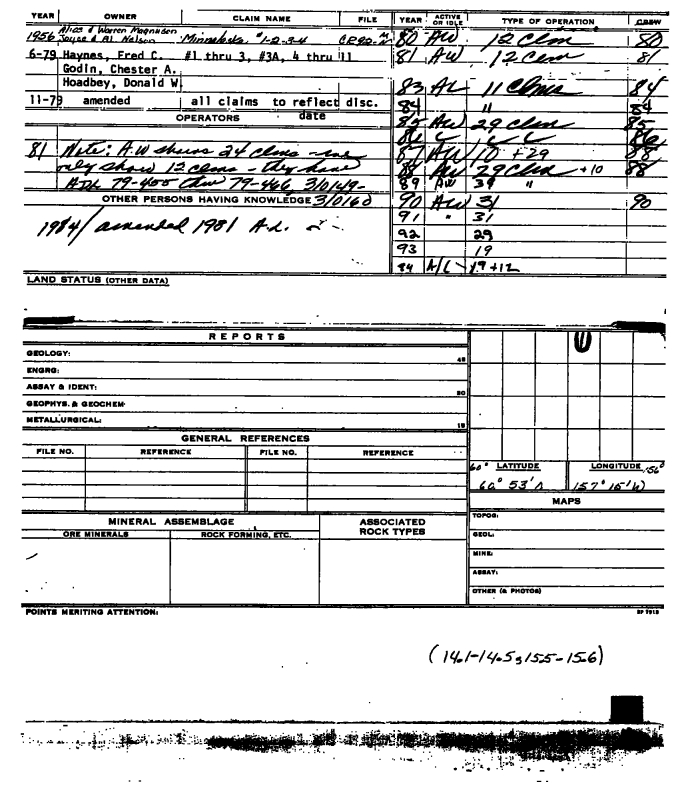 YEAR OWNER CLAIM NAME FILE YEAR ACTIVE OR IDLE TYPE OF OPERATION CBSW
1956 Alice & Warren Magnusen Joyce & Al Nelson Minneloska #1-2-3-4 80 AW 12 Clm 80
6-79 Haynes, Fred C. #1 thru 3, #3A, 4 thru 11 81 AW 12 Clm 81
Godin, Chester A.
Hoadbey, Donald W. 83 AL 11 Clms 84
11-79 amended all claims to reflect disc. date 84 " 84
OPERATORS 85 AW 29 Clm 85
86 86
81 Note: A.W shows 24 clms - we 87 AW 10 +29 88
only show 12 clms - they have 88 AW 29 Clm +10 88
ADL 79-455 thru 79-466, 310149- 89 AW 39 "
OTHER PERSONS HAVING KNOWLEDGE 310160 90 AW 31 90
1984/ amended 1981 A.L. 91 " 31
92 29
93 19
94 A/L 19 +12
LAND STATUS (OTHER DATA)
REPORTS
GEOLOGY: 45
ENGRG:
ASSAY & IDENT: 20
GEOPHYS. & GEOCHEM:
METALLURGICAL: 15
GENERAL REFERENCES
FILE NO. REFERENCE FILE NO. REFERENCE
60° LATITUDE LONGITUDE 156°
60° 53' N 157° 15' W
MAPS
MINERAL ASSEMBLAGE ASSOCIATED ROCK TYPES
ORE MINERALS ROCK FORMING, ETC.
TOPOG:
GEOL:
MINE:
ASSAY:
OTHER (& PHOTOS)
POINTS MERITING ATTENTION:
(14.1-14.5, 15.5-15.6)